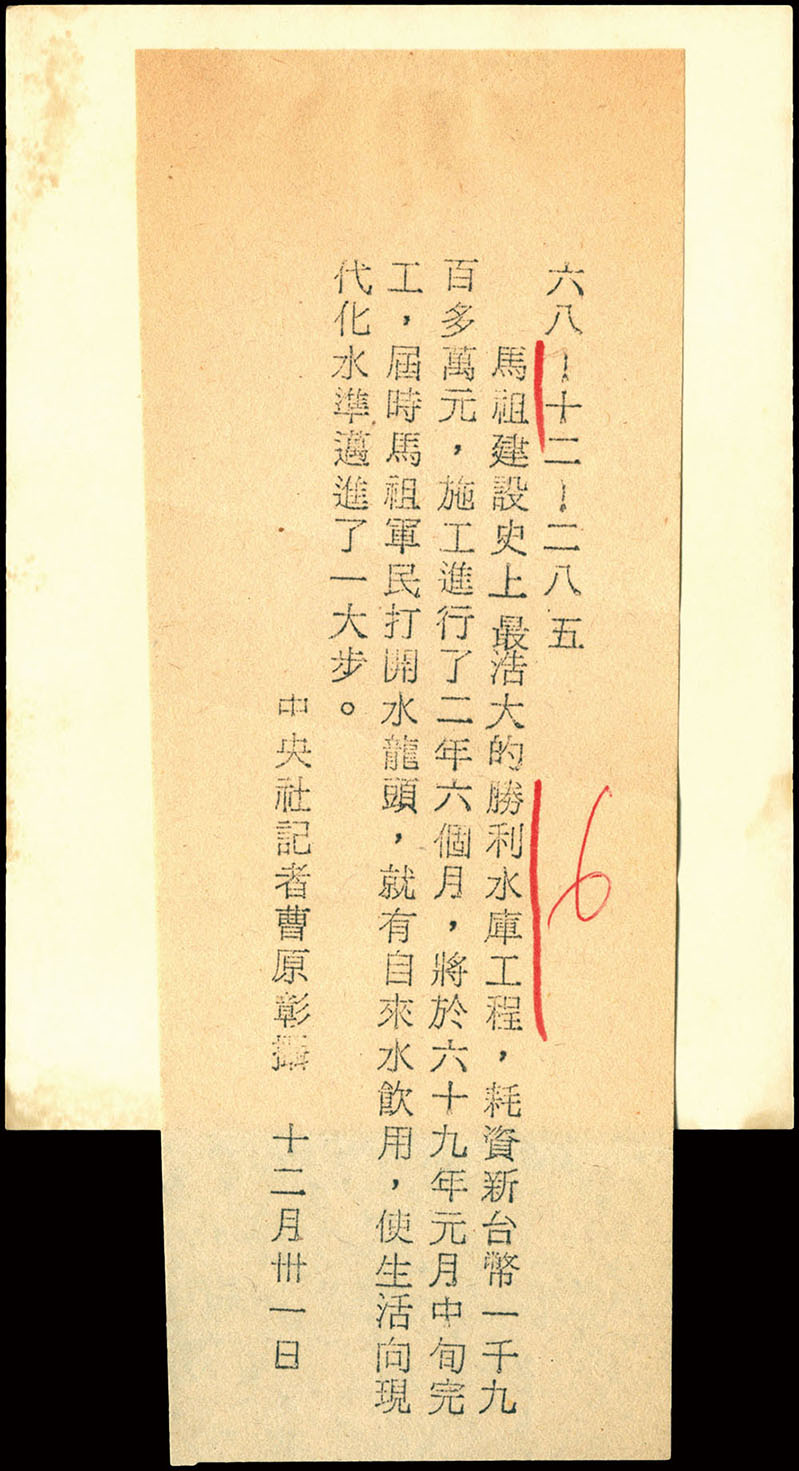 六八－十二－二八五
馬祖建設史上最浩大的勝利水庫工程，耗資新台幣一千九
百多萬元，施工進行了二年六個月，將於六十九年元月中旬完
工，屆時馬祖軍民打開水龍頭，就有自來水飲用，使生活向現
代化水準邁進了一大步。
中央社記者曹原彰攝　十二月卅一日
6